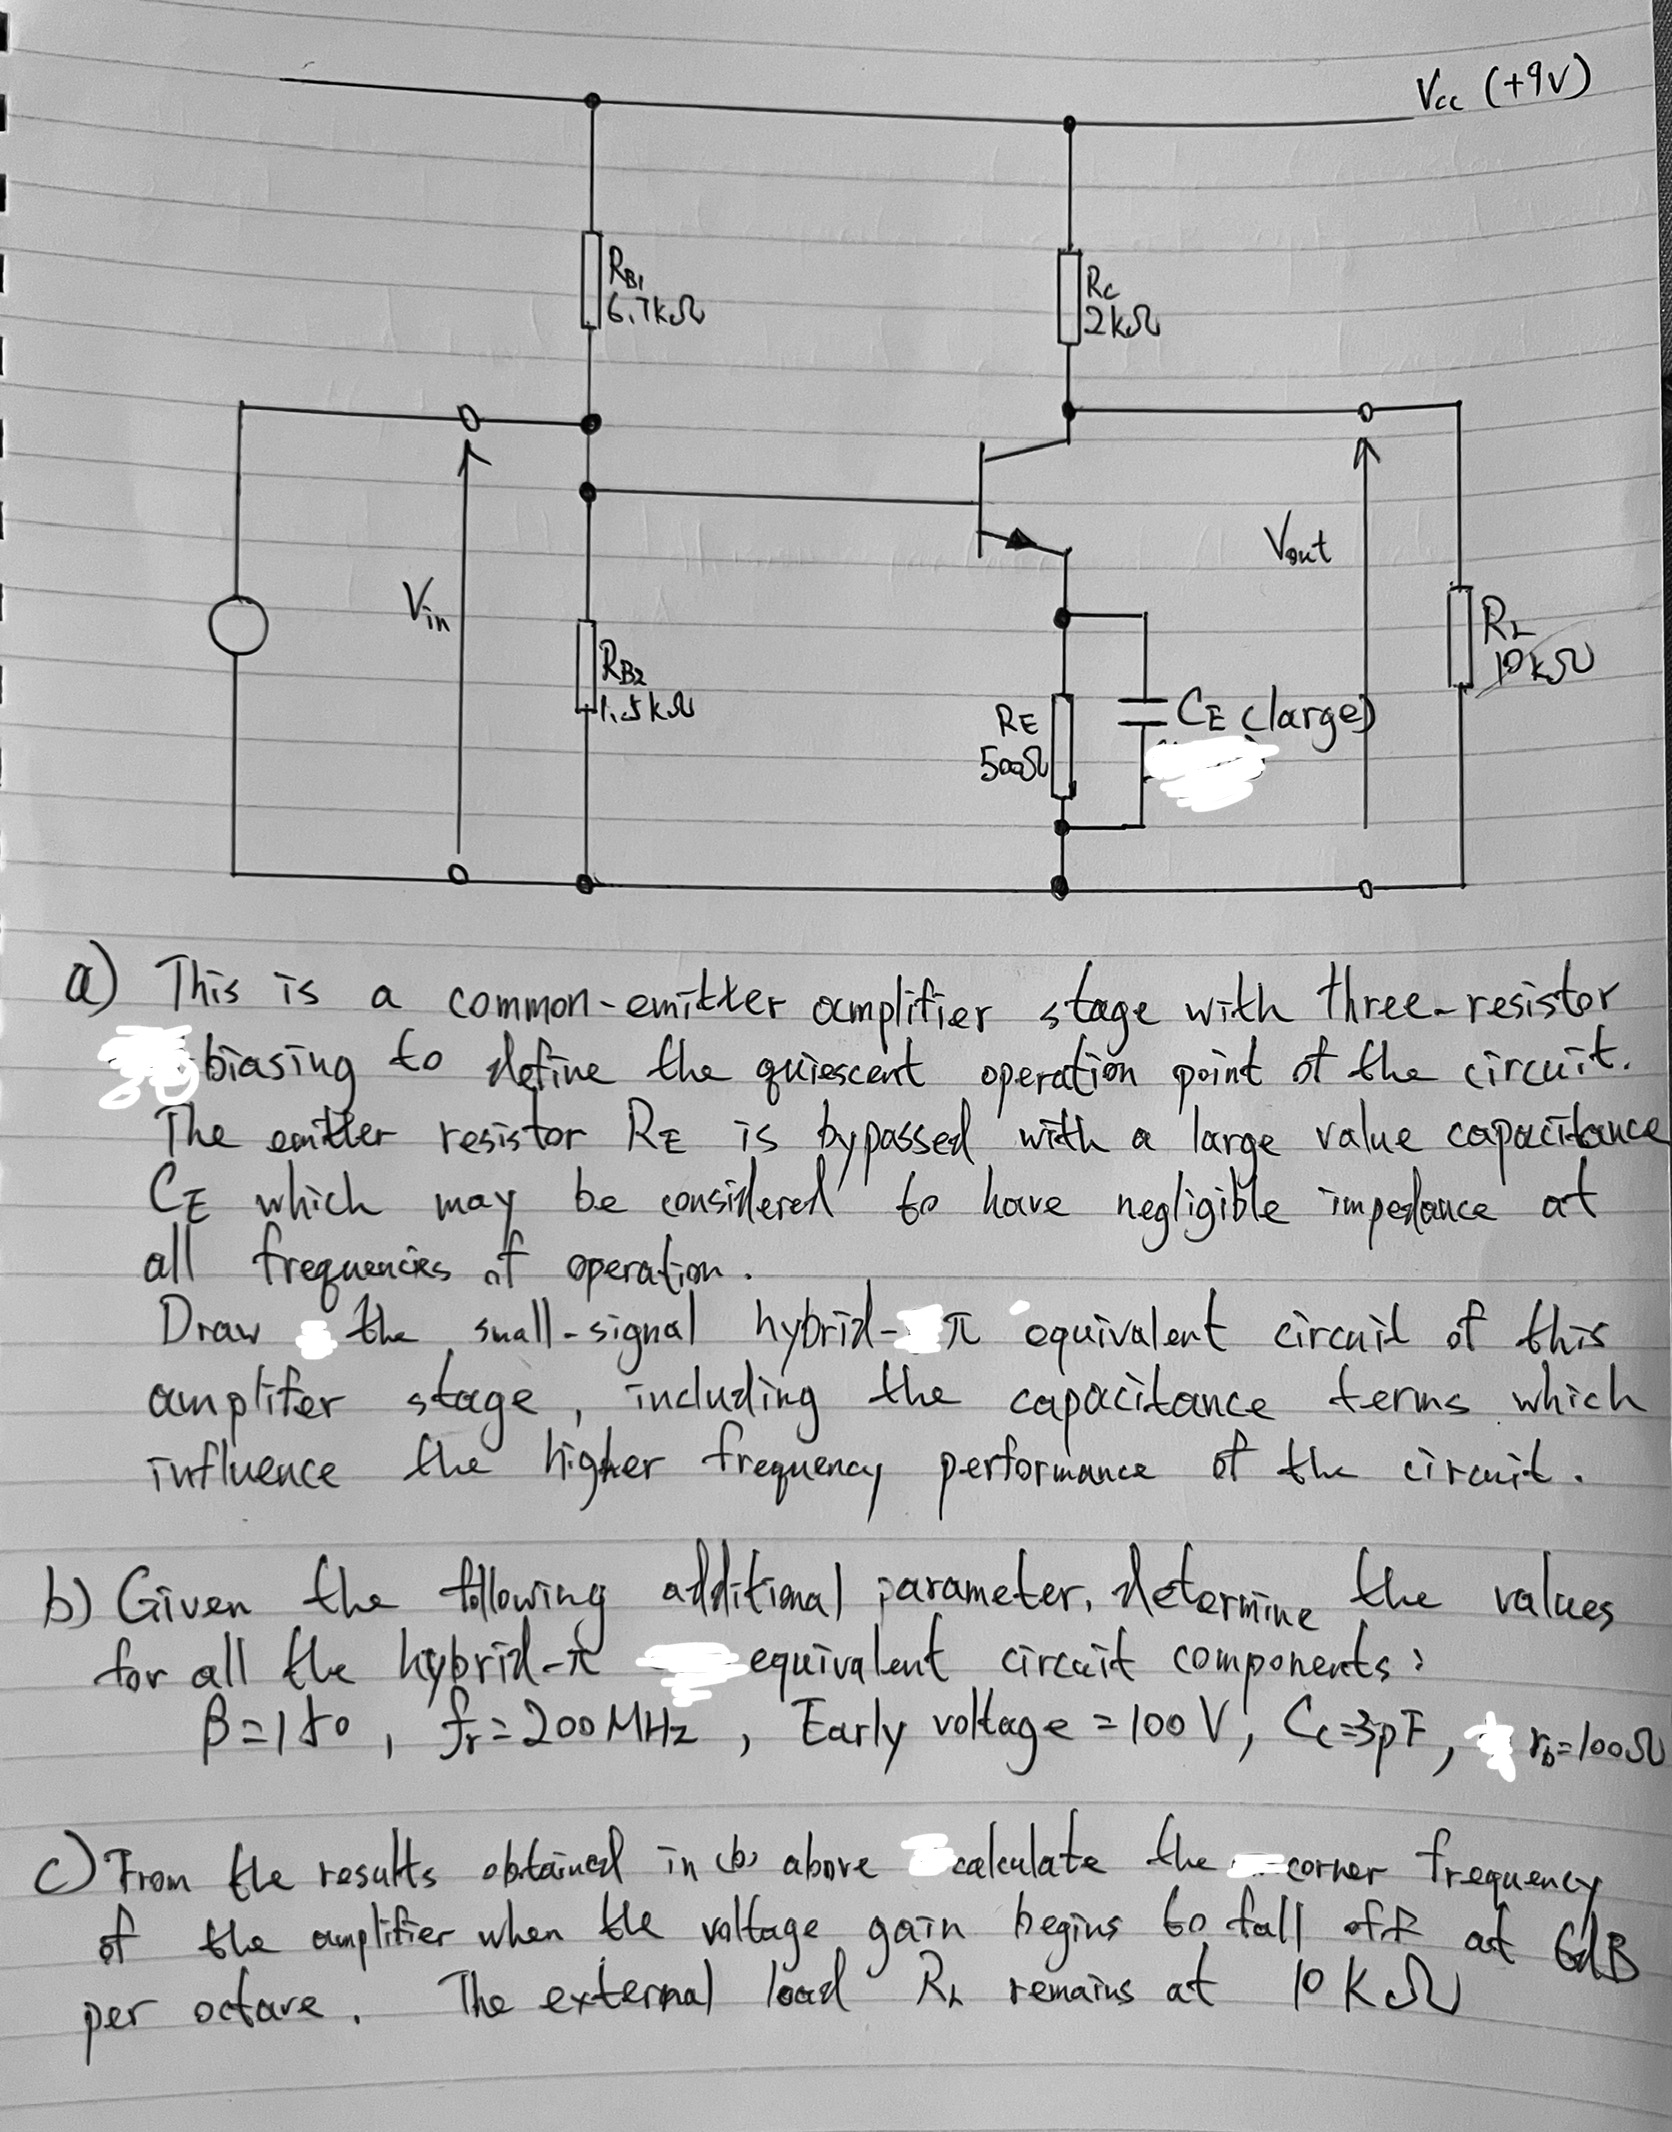 Vcc (+9V)
RB1
6.7kΩ
Rc
2kΩ
Vin
Vout
RL
10kΩ
RB2
1.5kΩ
RE
500Ω
CE (large)
a) This is a common-emitter amplifier stage with three-resistor
biasing to define the quiescent operation point of the circuit.
The emitter resistor RE is bypassed with a large value capacitance
CE which may be considered to have negligible impedance at
all frequencies of operation.
Draw the small-signal hybrid-π equivalent circuit of this
amplifer stage, including the capacitance terms which
influence the higher frequency performance of the circuit.
b) Given the following additional parameter, determine the values
for all the hybrid-π equivalent circuit components:
β=150, fT=200MHz, Early voltage = 100V, Cc=3pF, rb=100Ω
c) From the results obtained in (b) above calculate the corner frequency
of the amplifier when the voltage gain begins to fall off at 6dB
per octave. The external load RL remains at 10kΩ